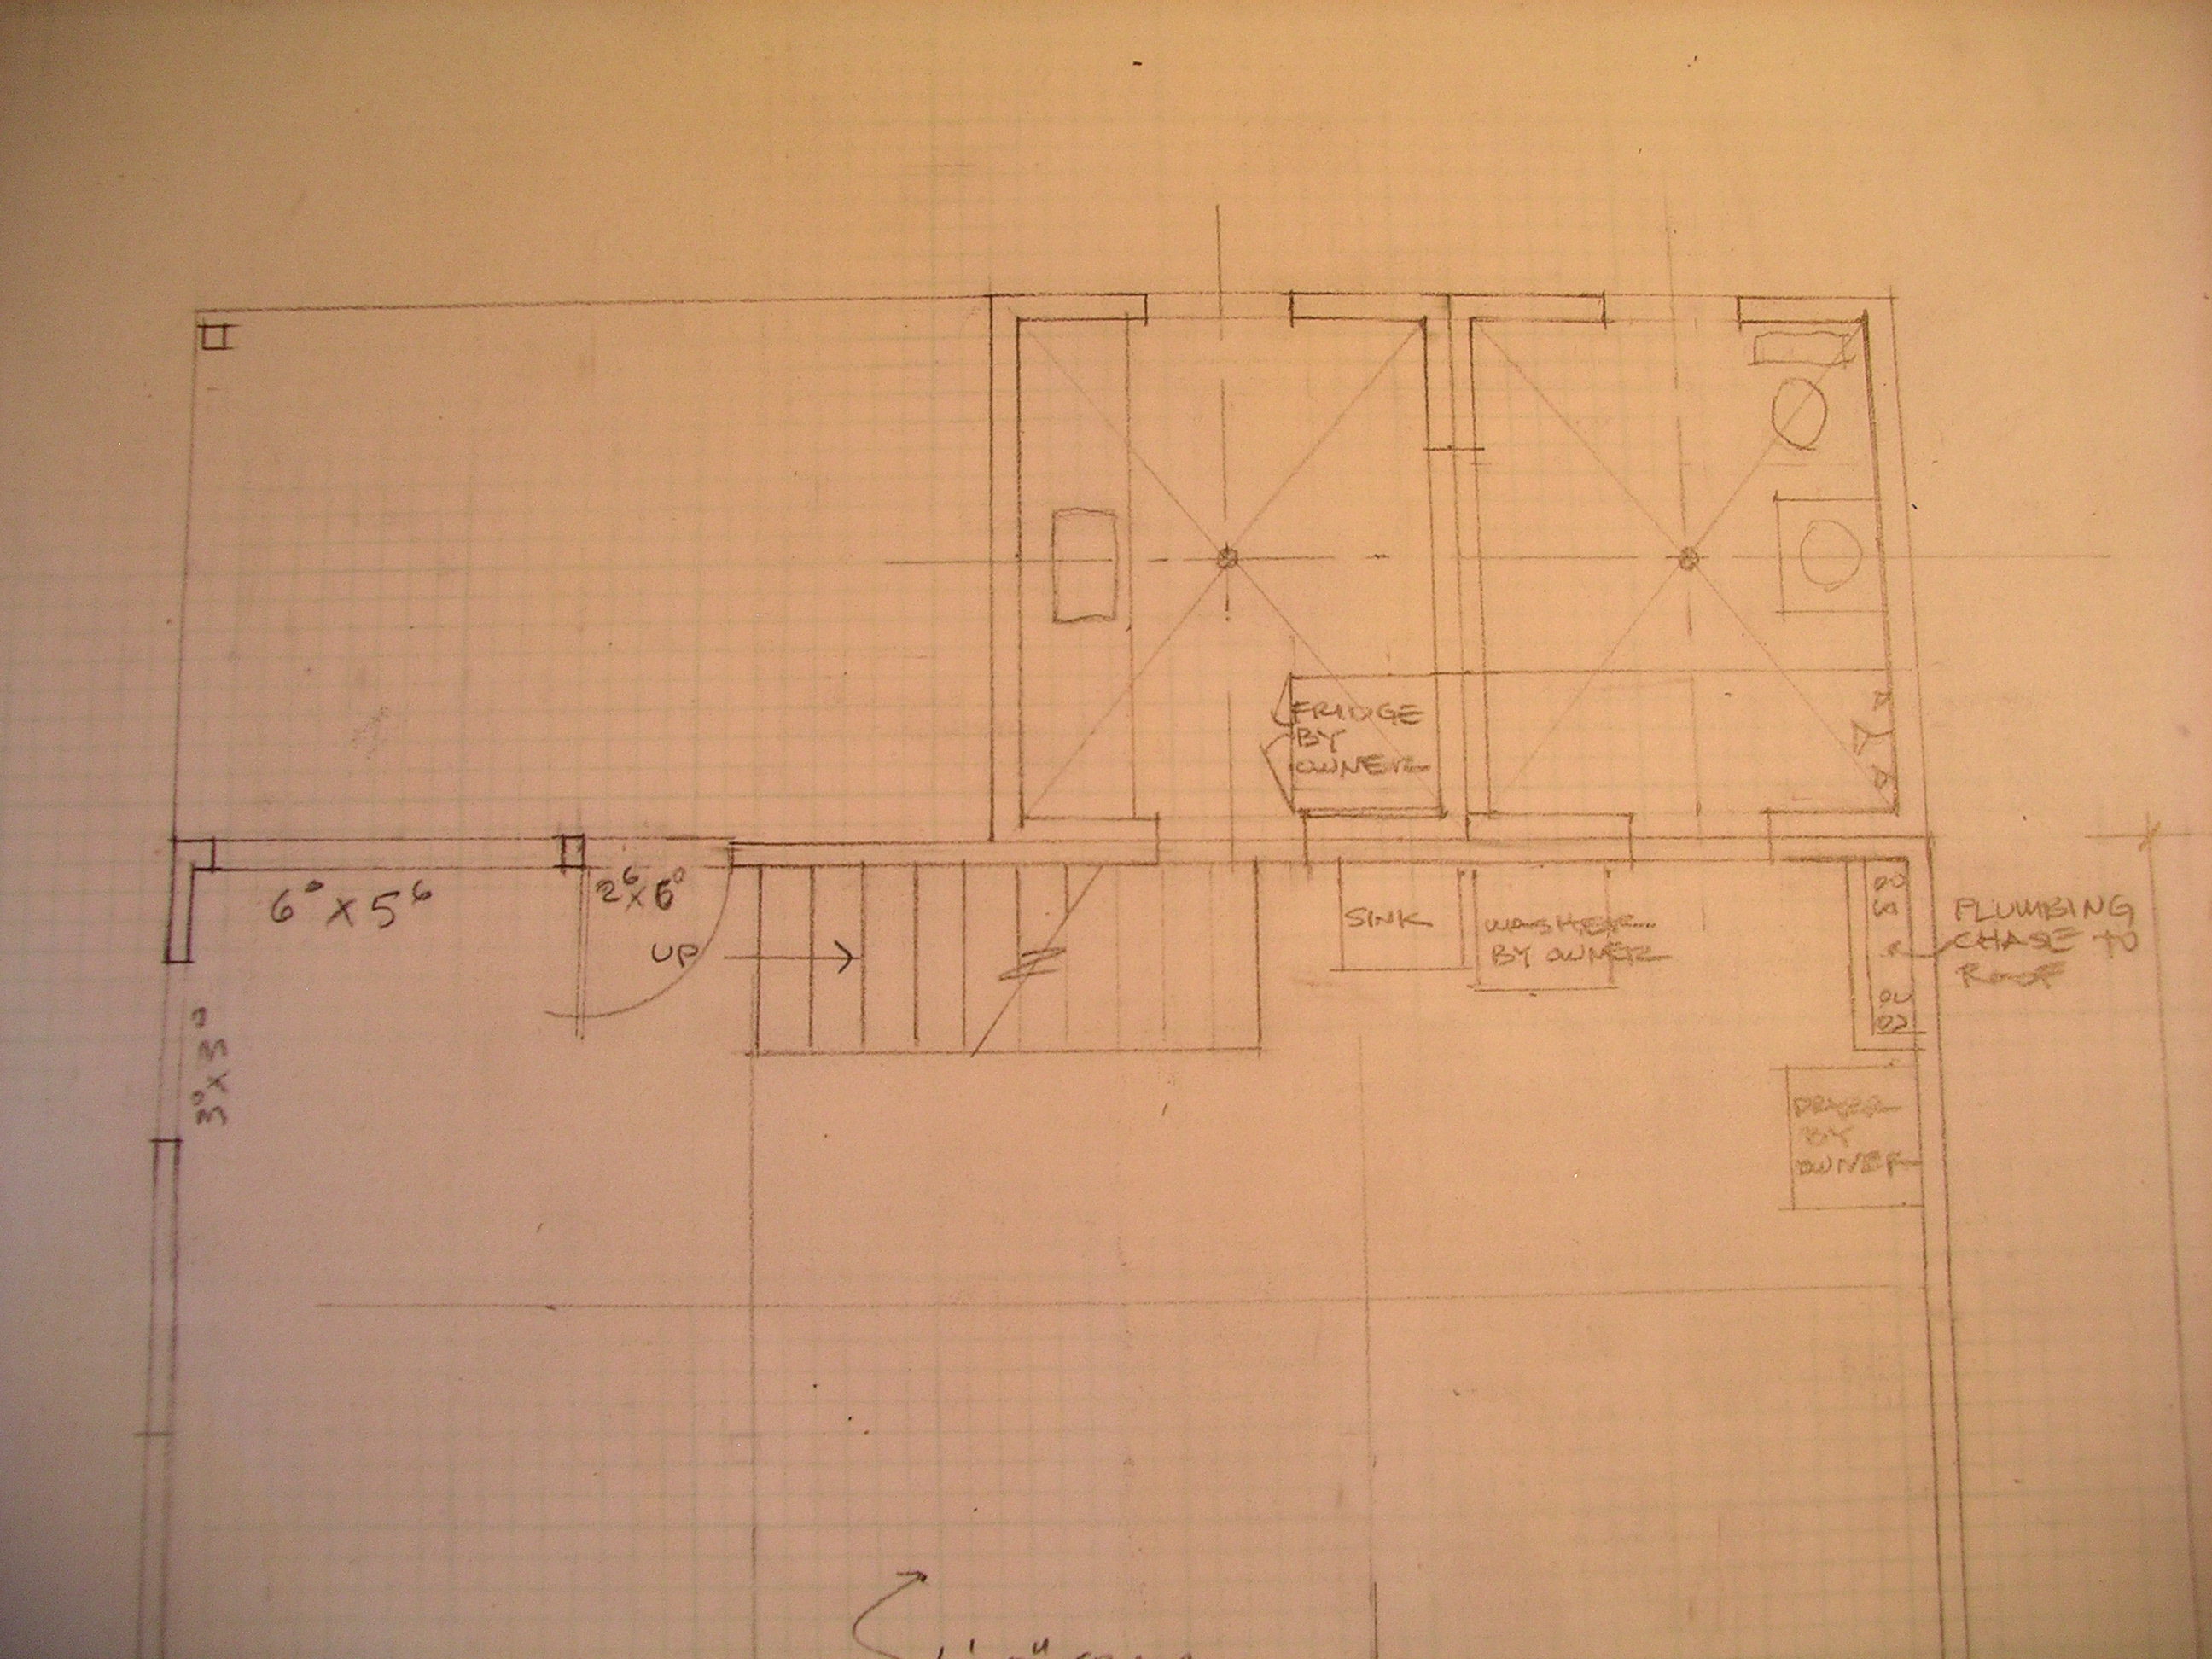 FRIDGE
BY
OWNER
6⁰ x 5⁶
2⁶ x 6⁰
UP
SINK
WASHER
BY OWNER
PLUMBING
CHASE TO
ROOF
3⁰ x 3⁰
DRYER
BY
OWNER